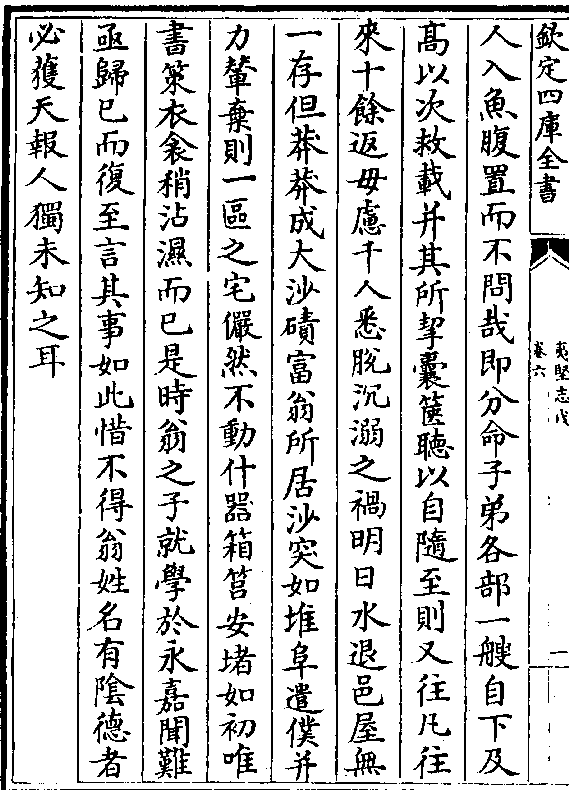 欽定四庫全書
夷堅志戊
卷六
一
人入魚腹置而不問哉即分命子弟各部一艘自下及
髙以次救載并其所挈囊篋聴以自隨至則又往凡往
來十餘返毋慮千人悉脱沉溺之禍明日水退邑屋無
一存但莽莽成大沙磧富翁所居沙突如堆阜遣僕并
力輦棄則一區之宅儼然不動什器箱筥安堵如初唯
書䇿衣衾稍沾濕而已是時翁之子就學於永嘉聞難
亟歸已而復至言其事如此惜不得翁姓名有隂德者
必獲天報人獨未知之耳